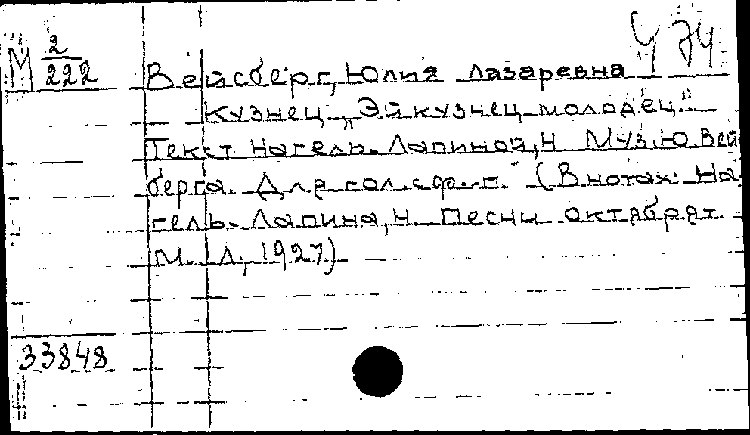 М 2/222
Ч 74
Вейсберг, Юлия Лазаревна
Кузнец „Эй кузнец молодец"
Текст Нагель-Лапиной, Н Муз. Ю. Вей
берга. Для гол. с ф.-п. (В нотах: На
гель-Лапина, Н Песни октябрят.
М. Л., 1927)
33848